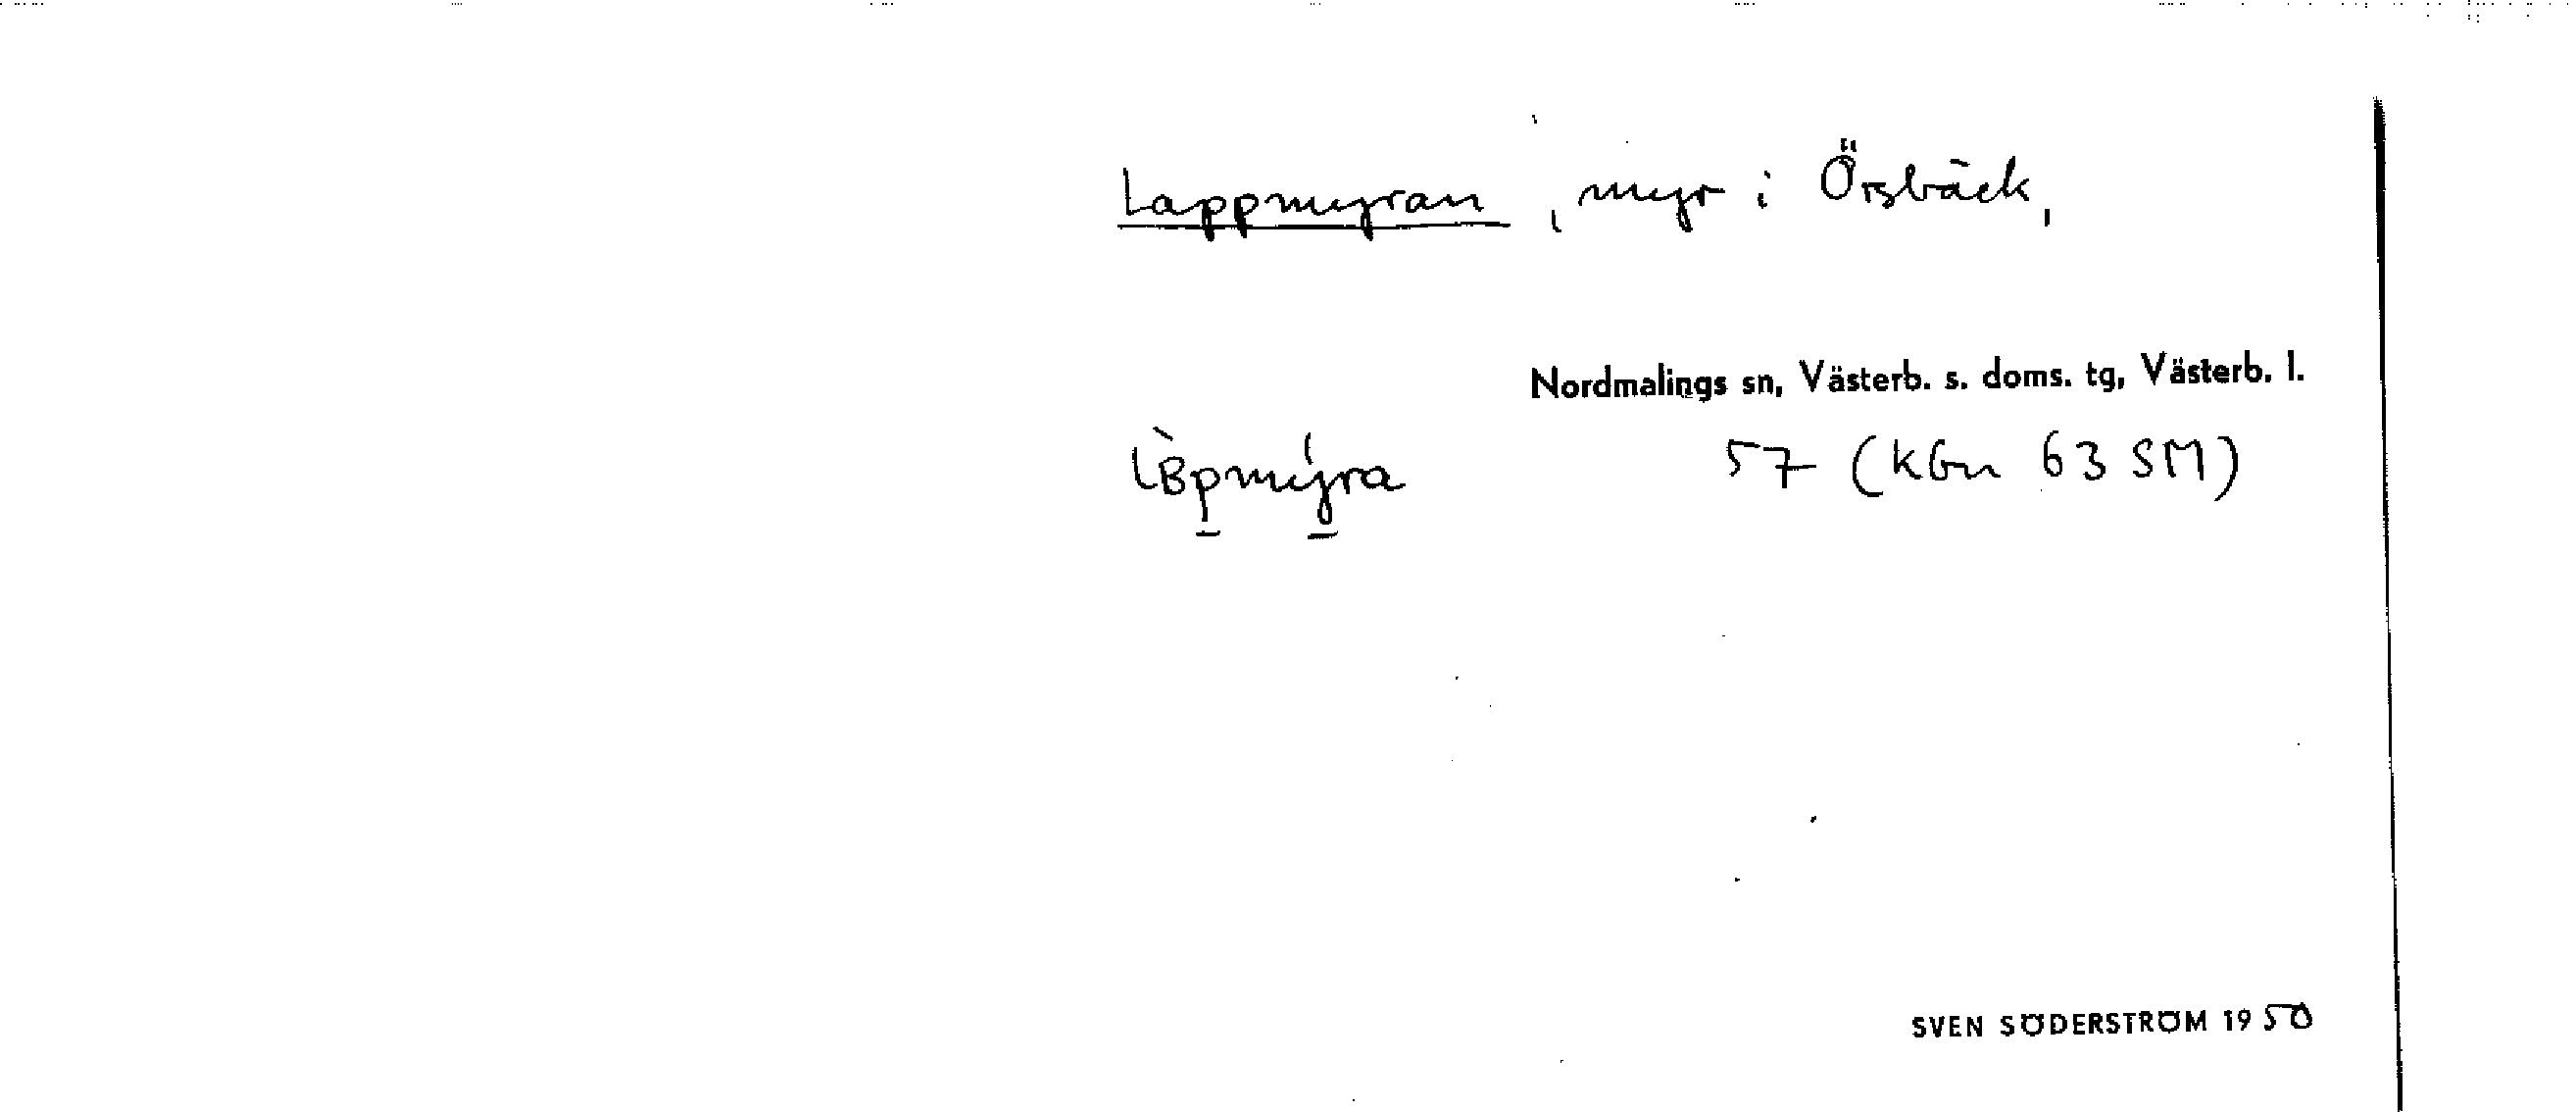 Lappmyran, myr i Örsbäck,
Nordmalings sn, Västerb. s. doms. tg, Västerb. l.
57 (KGn 63 SM)
SVEN SÖDERSTRÖM 1950